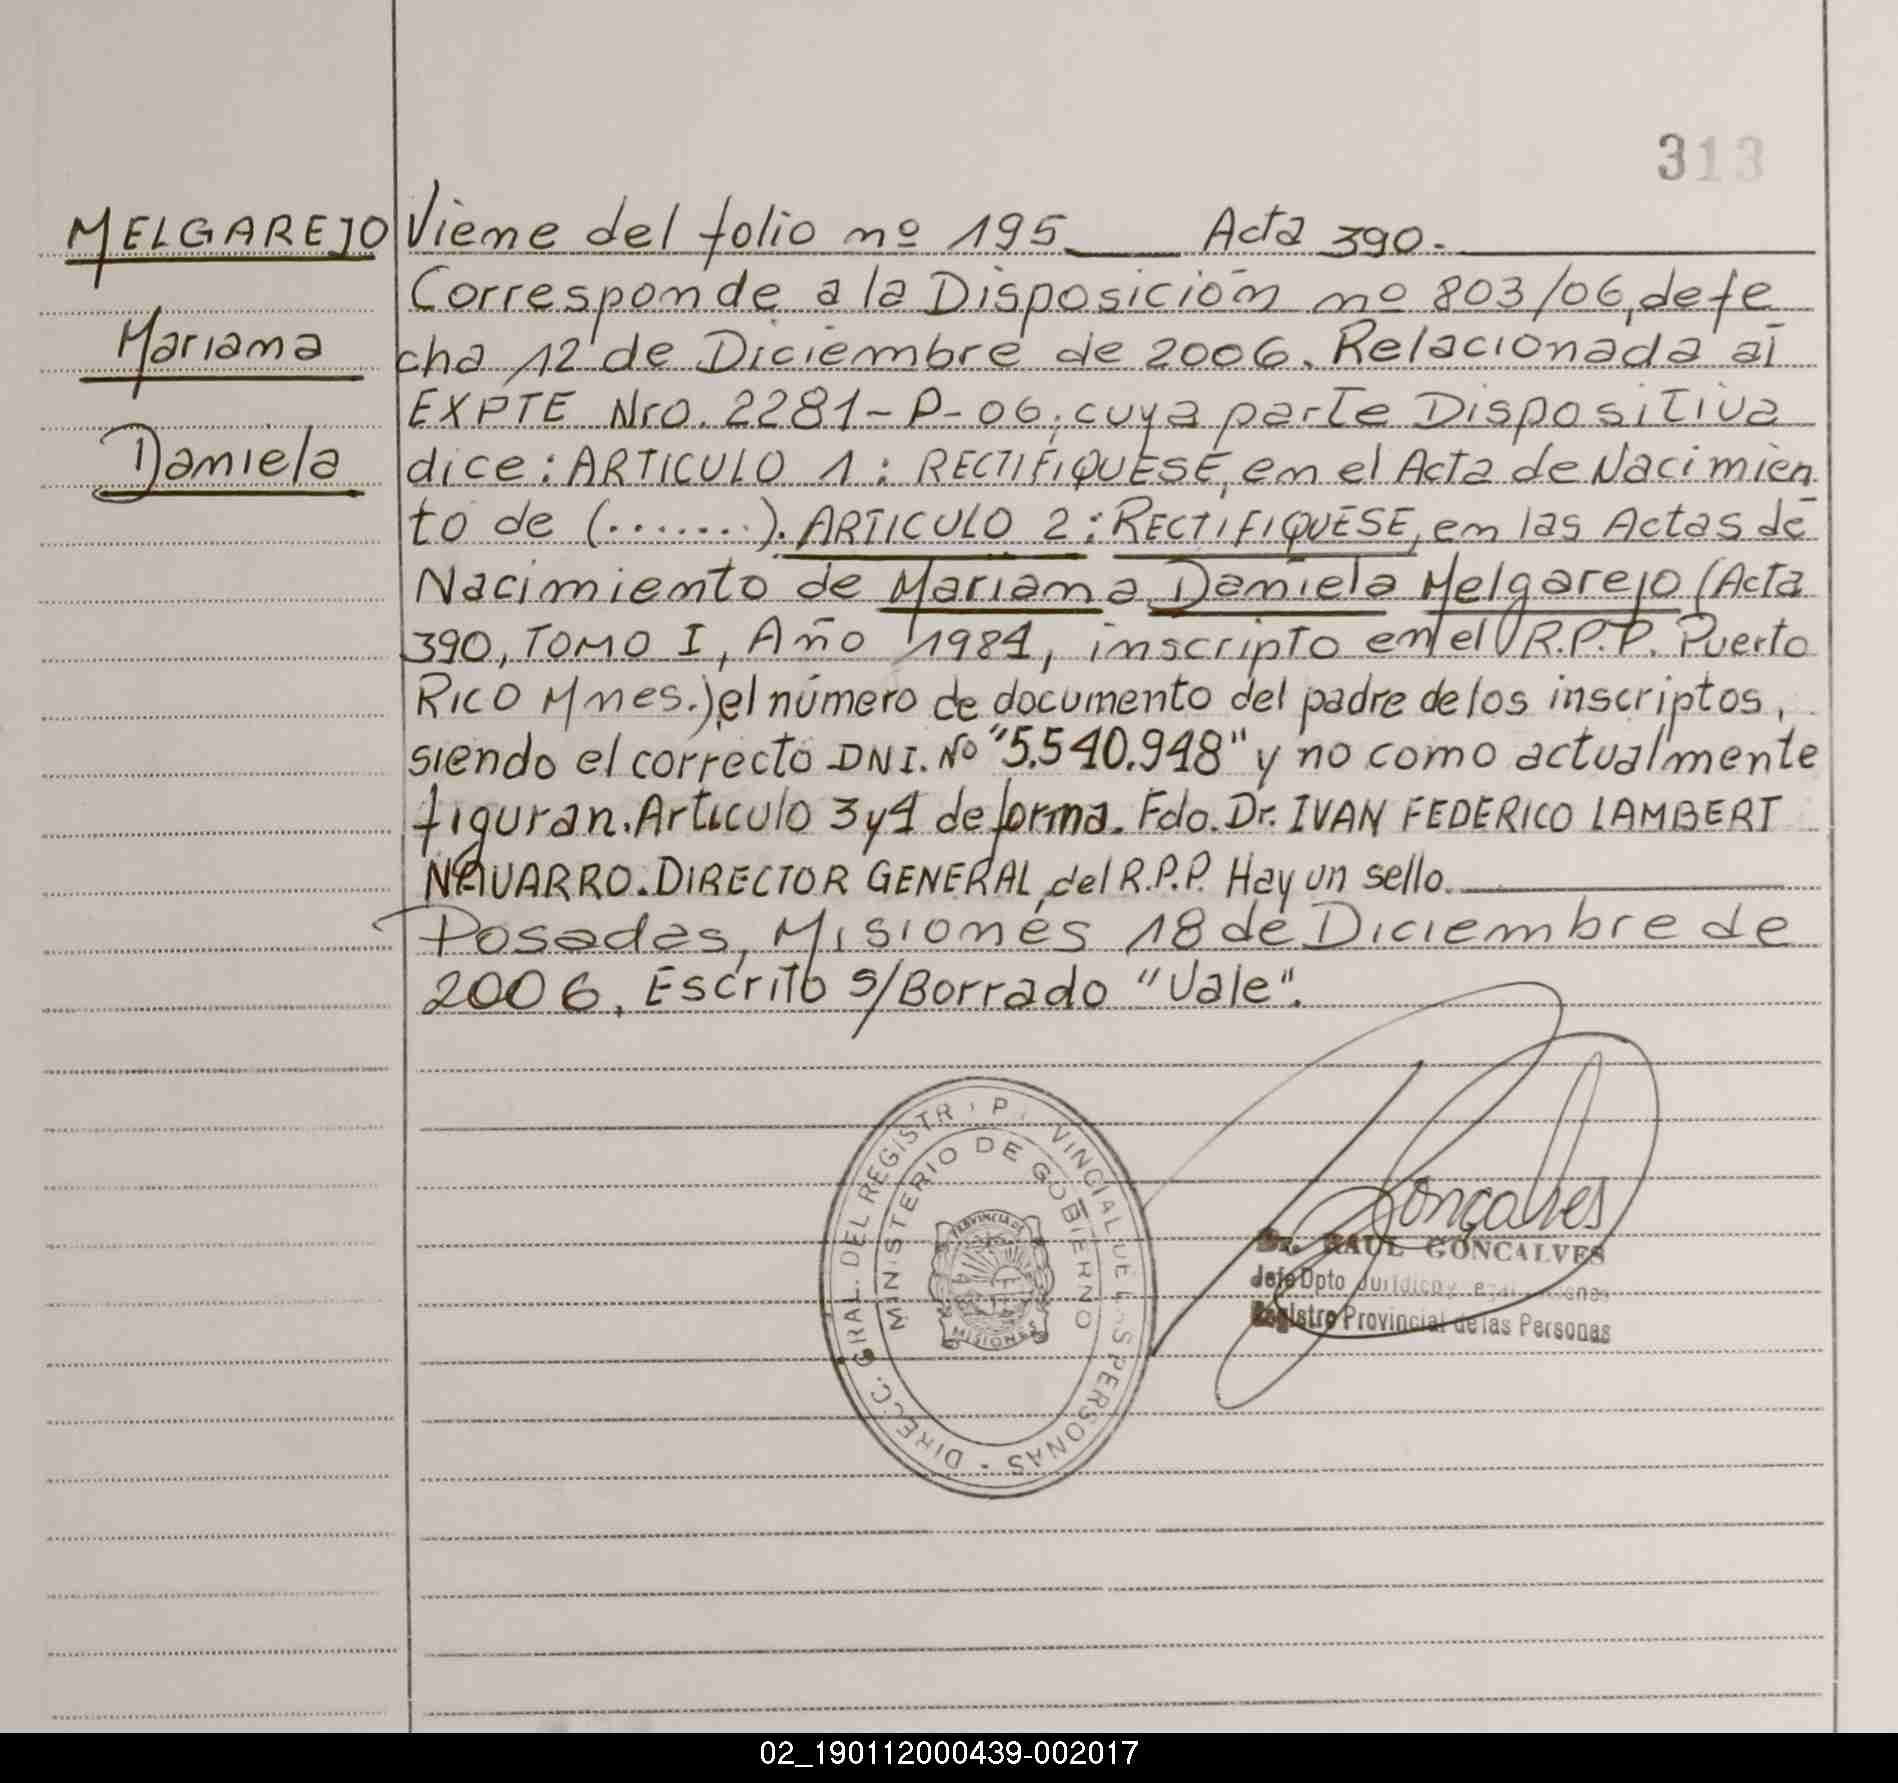 313
MELGAREJO
Mariana
Daniela
Viene del folio nº 195. Acta 390.
Corresponde a la Disposición nº 803/06, de fe
cha 12 de Diciembre de 2006. Relacionada al
EXPTE Nro. 2281-P-06; cuya parte Dispositiva
dice: ARTICULO 1: RECTIFIQUESE, en el Acta de Nacimien
to de (.......). ARTICULO 2: RECTIFIQUESE, en las Actas de
Nacimiento de Mariana Daniela Melgarejo (Acta
390, TOMO I, Año 1984, inscripto en el R.P.P. Puerto
Rico Mnes.) el número de documento del padre de los inscriptos,
siendo el correcto DNI. Nº "5.540.948" y no como actualmente
figuran. Articulo 3 y 4 de forma. Fdo. Dr. IVAN FEDERICO LAMBERT
NAVARRO. DIRECTOR GENERAL, del R.P.P. Hay un sello.
Posadas, Misiones 18 de Diciembre de
2006. Escrito s/Borrado "Vale".
DIRECC. GRAL. DEL REGISTR P VINCIAL DE LAS PERSONAS
MINISTERIO DE GOBIERNO
PROVINCIA DE
MISIONES
Gonçalves
Dr. RAUL GONCALVES
Jefe Dpto Juridico y
Registro Provincial de las Personas
02_190112000439-002017